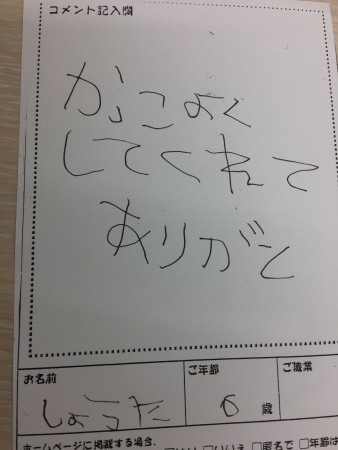 コメント記入欄
かっこよく
してくれて
ありがと
お名前
ご年齢
ご職業
しょうた
6 歳
ホームページに掲載する場合、
はい □いいえ □匿名で □年齢は